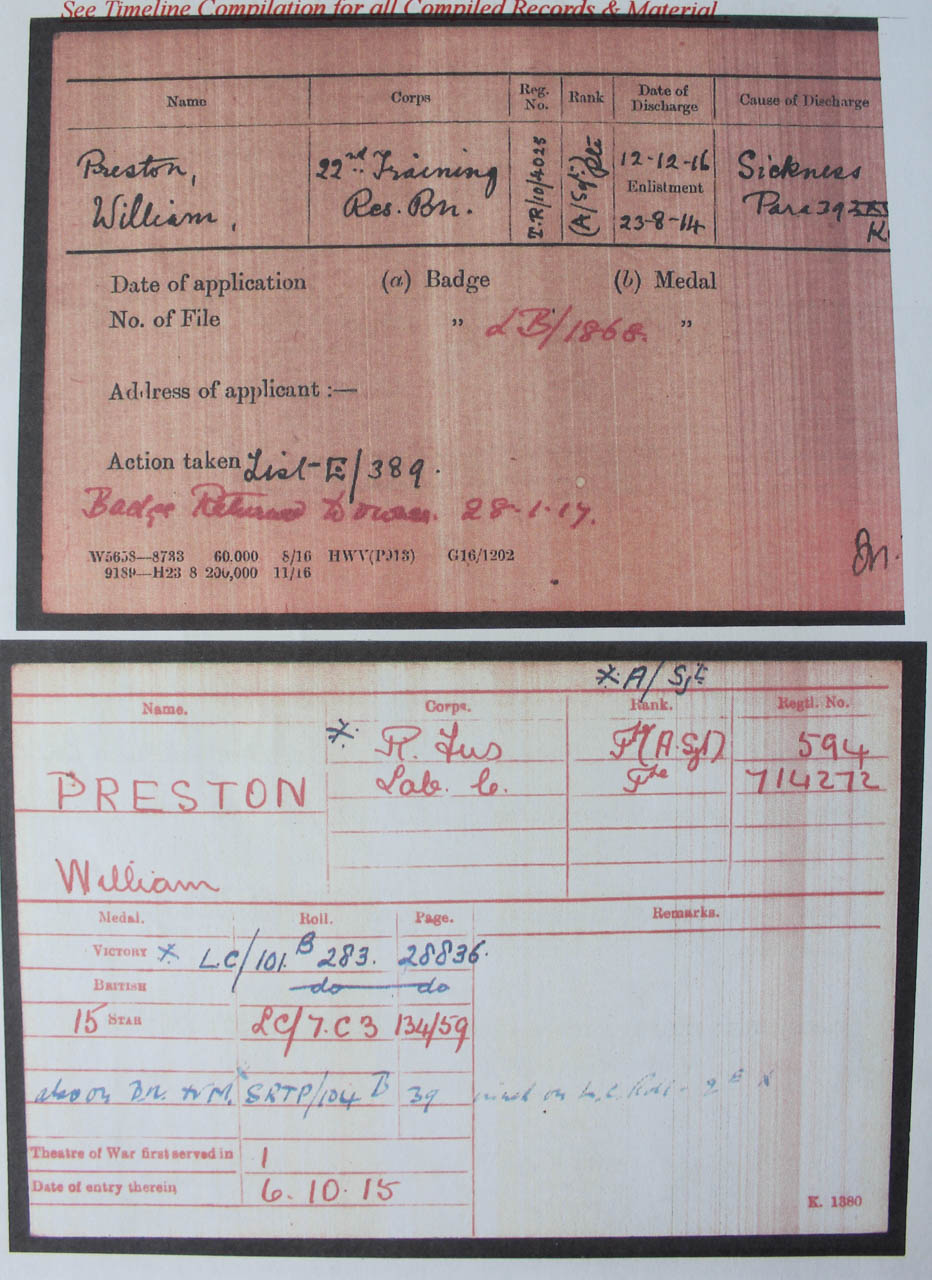 See Timeline Compilation for all Compiled Records & Material.
Name Corps Reg. No. Rank Date of Discharge Cause of Discharge
Preston, William, 22nd Training Res. Bn. T.R/10/4025 (A/Sgt.) Pte 12-12-16 Enlistment 23-8-14 Sickness Para 392 K.
Date of application (a) Badge (b) Medal
No. of File „ LB/1868. „
Address of applicant :—
Action taken List-E/389.
Badge Returned 28-1-17.
W5658—8733 60.000 8/16 HWV(P913) G16/1202
9189—H23 8 200,000 11/16
X A/Sgt
Name. Corps. Rank. Regtl. No.
X R. Fus (A.Sgt) 594
PRESTON Lab. C. Pte 714272
William
Medal. Roll. Page. Remarks.
VICTORY X LC/101 B 283. 28836.
BRITISH do do
15 STAR LC/7.C3 134/59
also on SRTP/104 B 39 on Roll
Theatre of War first served in 1
Date of entry therein 6.10.15
K. 1380